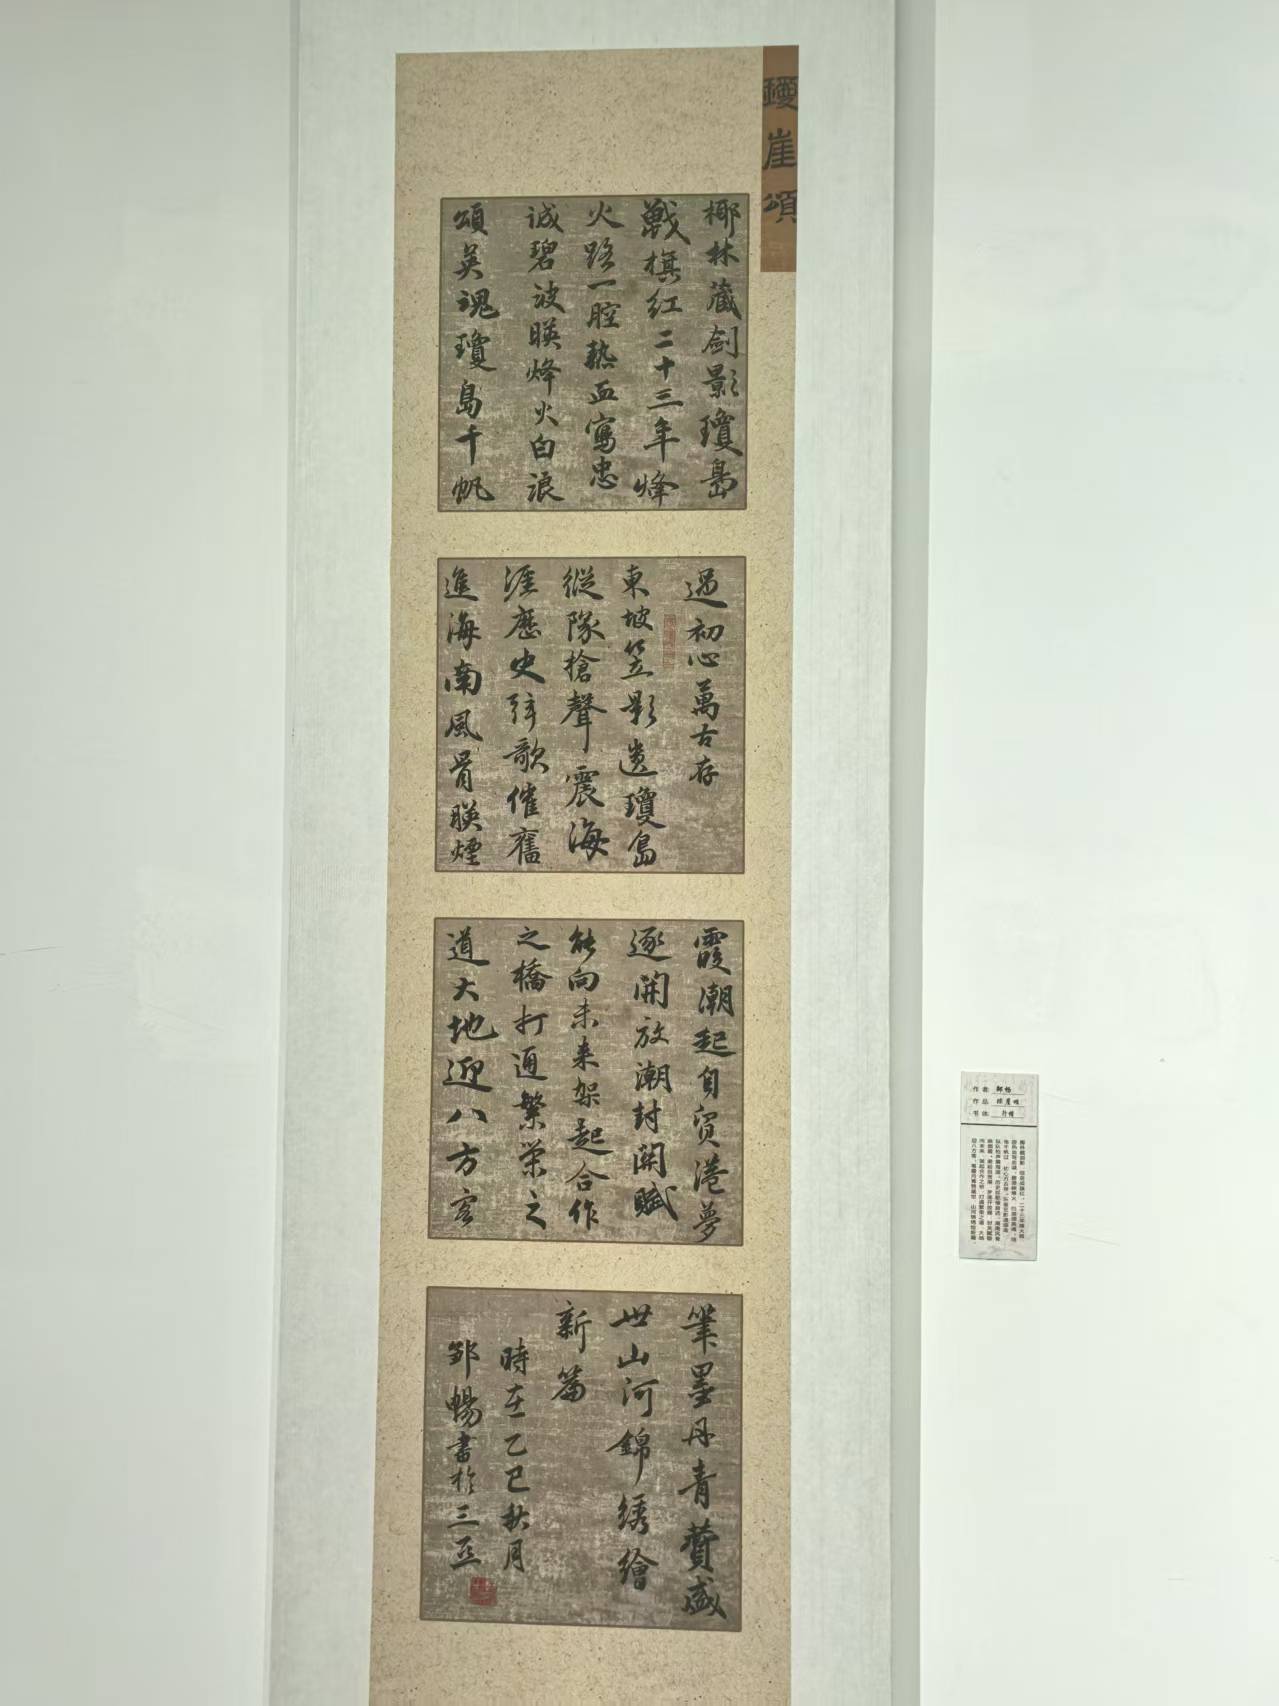 瓊崖頌
椰林藏劍影瓊島
戰旗紅二十三年烽
火路一腔熱血寫忠
誠碧波暎烽火白浪
頌英魂瓊島千帆
過初心萬古存
東坡笠影遺瓊島
縱隊槍聲震海
涯歷史弦歌催舊
進海南風骨暎煙
霞潮起自貿港夢
逐開放潮封關賦
能向未來架起合作
之橋打通繁榮之
道大地迎八方客
筆墨丹青贊盛
世山河錦繡繪
新篇
時在乙巳秋月
鄒暢書於三亞
作者 鄒暢
作品 琼崖颂
书体 行楷